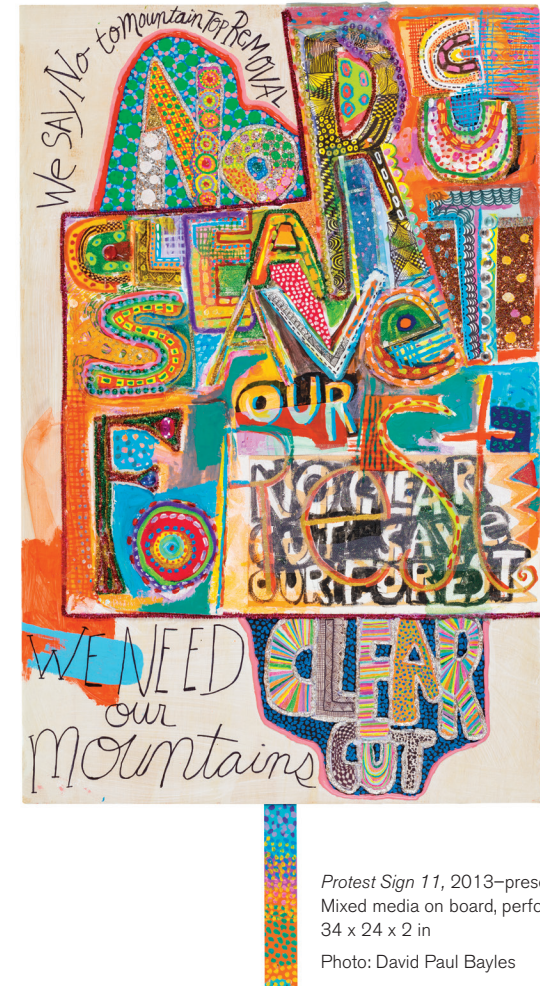 We SAY No to Mountain Top REMOVAL
No
CLEAR
CUT
SAVe
OUR
Forest
NO CLEAR
CUT SAVe
OUR FOREST
WE NEED
our
mountains
CLEAR
CUT
Protest Sign 11, 2013–prese
Mixed media on board, perfo
34 x 24 x 2 in
Photo: David Paul Bayles